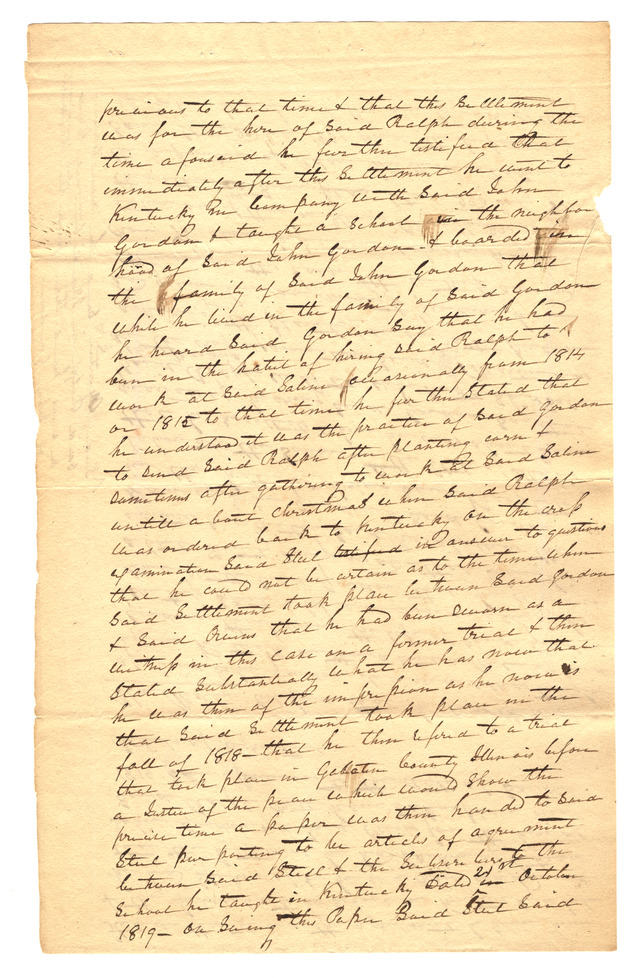 previous to that time & that this Settlement
was for the hire of Said Ralph during the
time aforesaid he further testified that
immediately after this Settlement he went to
Kentucky in Company with Said John
Gordon & taught a School in the neighbor
hood of Said John Gordon & boarded in
the family of Said John Gordon that
while he lived in the family of Said Gordon
he heard Said Gordon Say that he had
been in the habit of hiring said Ralph to
work at Said Saline occasionally from 1814
or 1815 to that time he further Stated that
he understood it was the practice of Said Gordon
to send Said Ralph after planting corn &
Sumtimes after gathering to work at Said Saline
untill a bout christmas when Said Ralph
was ordered back to Kentucky on the cross
examination Said Steel testified in answer to questions
that he could not be certain as to the time when
Said Settlement took place between Said Gordon
& Said that he had been Sworn as a
witness in this case on a former trial & then
Stated Substantially what he has now that
he was then of the impression as he now is
that Said Settlement took place in the
fall of 1818 - that he then refered to a trial
that took place in Gallatin County Illinois before
a Justice of the peace which would Show the
precise time a paper was then handed to Said
Steel purporting to be articles of agreement
between Said Steel & the Subscribers to the
School he taught in Kentucky Dated 21st October
1819 - on Seeing this Paper Said Steel Said